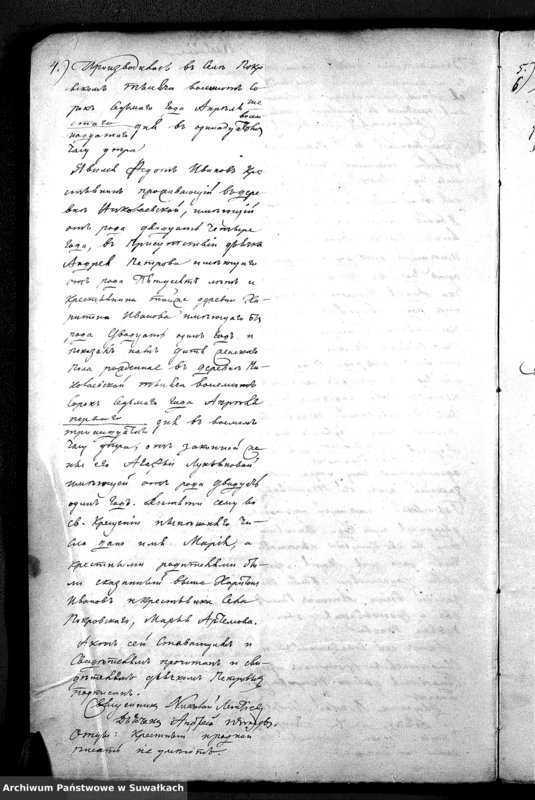 4.) Произходилъ въ Селѣ Покро
вскомъ тысяча восемсотъ Со
рокъ Седьмаго Года Апрѣля ше
стаго дня въ одинадцатомъ
часу утра
Явилъ Федотъ Ивановъ кре
стьянинъ проживающій въ дере
внѣ Николаевской, имеющій
отъ рода двадцать четыре
года, въ присутствіи дьячка
Андрея Петрова имеющаго
отъ рода пятдесятъ лѣтъ и
крестьянина тойже деревни Ха
ритона Иванова имеющаго отъ
рода двадцать одинъ годъ и
показалъ намъ дитя женскаго
пола рожденное въ деревнѣ Ни
колаевской тысяча восемсотъ
Сорокъ Седьмаго Года Апрѣля
перваго дня въ восемь
часу утра; отъ законной же
ны его Агафьи Лукьяновой
имеющей отъ рода двадцать
одинъ годъ. Дитяти сему во
св. Крещеніи
сла дано имя Марія, а
крестными родителями бы
ли сказанный выше Харитонъ
Ивановъ и крестьянка Села
Покровскаго, Марья Артемова.
Актъ сей Ставающимъ и
Свидѣтелямъ прочитанъ и сви
дѣтелемъ дьячкомъ Петровымъ
подписанъ.
Священникъ Николай
Дьячекъ Андрей Петровъ
Отецъ: крестный
писать не умеютъ.
5.)
6)
Archiwum Państwowe w Suwałkach